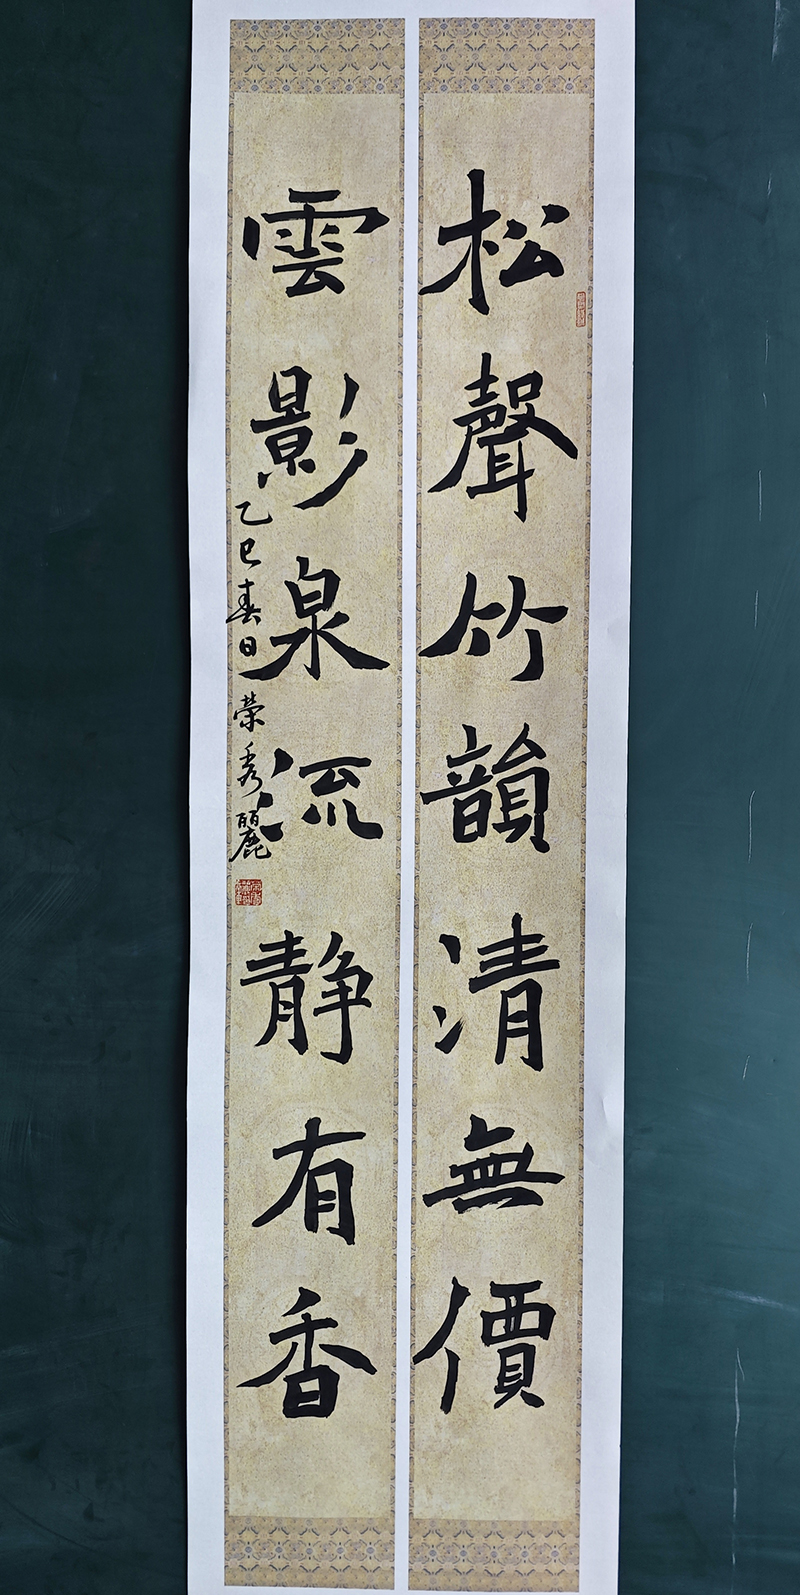 松聲竹韻清無價
雲影泉流静有香
乙巳春日荣秀麗